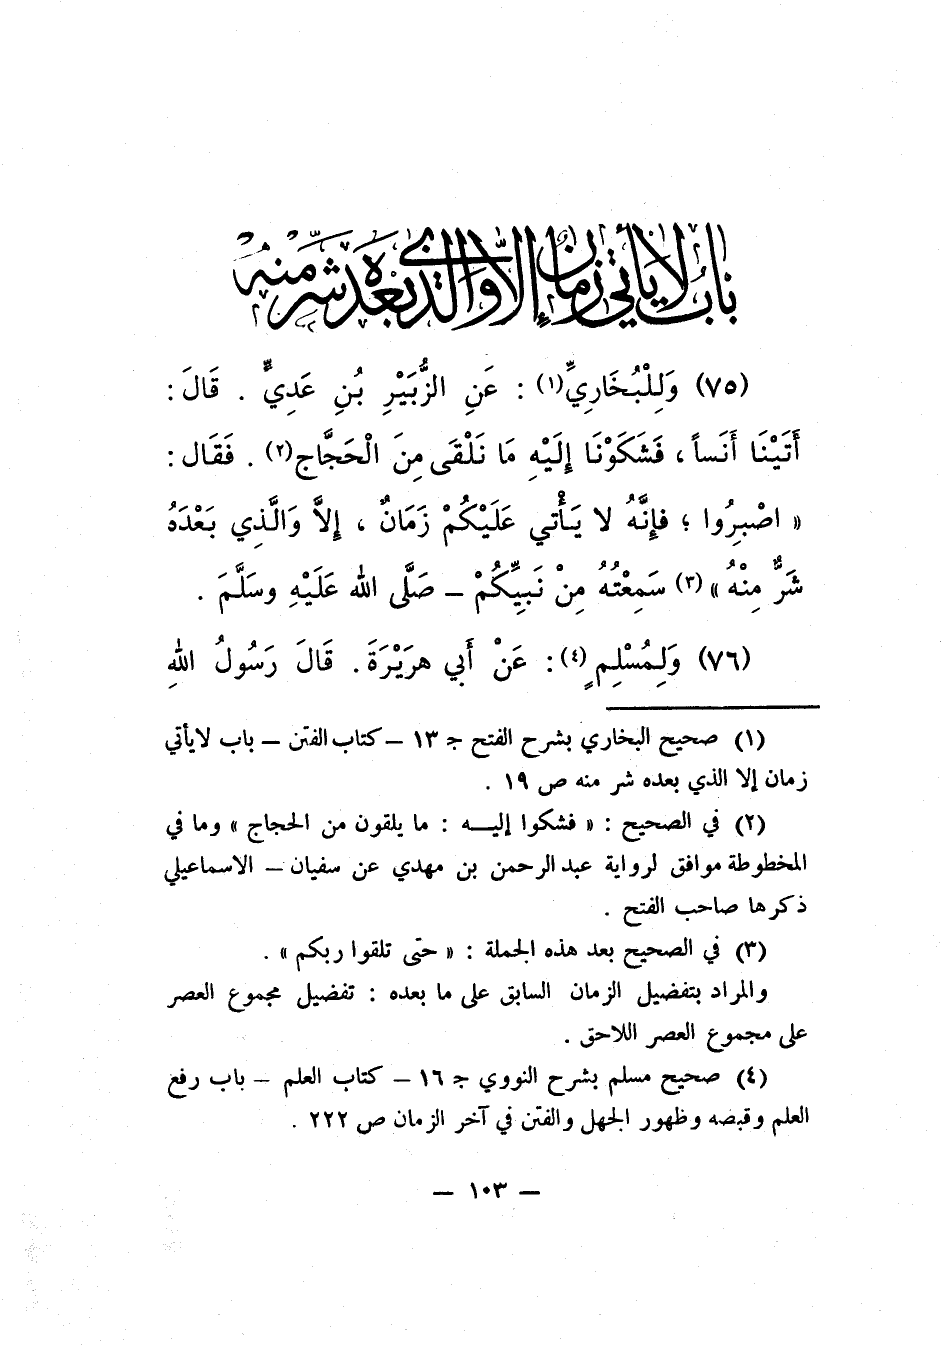 باب لا يأتي زمان إلا والذي بعده شر منه
(٧٥) وَلِلْبُخَارِيِّ(١) : عَنِ الزُّبَيْرِ بْنِ عَدِيٍّ . قَالَ :
أَتَيْنَا أَنَساً ، فَشَكَوْنَا إِلَيْهِ مَا نَلْقَى مِنَ الْحَجَّاجِ(٢) . فَقَال :
« اصْبِرُوا ؛ فإِنَّهُ لا يَأْتي عَلَيْكُمْ زَمَانٌ ، إِلاَّ وَالَّذِي بَعْدَهُ
شَرٌّ مِنْهُ » (٣) سَمِعْتُهُ مِنْ نَبِيِّكُمْ – صَلَّى الله عَلَيْهِ وسَلَّمَ .
(٧٦) وَلِمُسْلِمٍ(٤) : عَنْ أَبي هرَيْرَةَ . قَالَ رَسُولُ اللهِ
(١) صحيح البخاري بشرح الفتح جـ ١٣ – كتاب الفتن – باب لايأتي
زمان إلا الذي بعده شر منه ص ١٩ .
(٢) في الصحيح : « فشكوا إليـــه : ما يلقون من الحجاج » وما في
المخطوطة موافق لرواية عبد الرحمن بن مهدي عن سفيان – الاسماعيلي
ذكرها صاحب الفتح .
(٣) في الصحيح بعد هذه الجملة : « حتى تلقوا ربكم » .
والمراد بتفضيل الزمان السابق على ما بعده : تفضيل مجموع العصر
على مجموع العصر اللاحق .
(٤) صحيح مسلم بشرح النووي جـ ١٦ – كتاب العلم – باب رفع
العلم وقبضه وظهور الجهل والفتن في آخر الزمان ص ٢٢٢ .
– ١٠٣ –